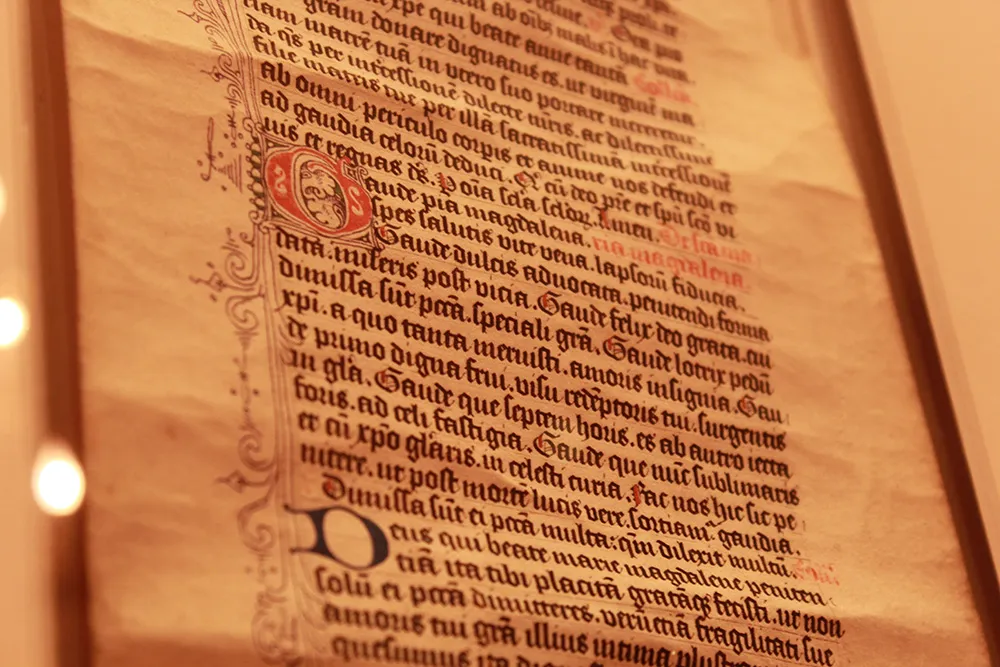 xpe qui beate anne tantā
gram donare dignatus es. ut virginē ma
riam matrē tuā in utero suo portare mereretur.
da q̄s per intercessionē dilecte m̄ris. ac dilectissime
filie matris tue per illā sacratissimā intercessionē
ab omni periculo corpis et anime nos defendi et
ad gaudia celorū deduci. Q̄ cū deo pr̄e et spū scō vi
uis et regnas ds̄. P oīa scl̄a sclo℞. Amen. De sancta ma
Gaude pia magdalena. ria magdalena.
spes salutis vite vena. lapsorū fiducia.
Gaude dulcis advocata. penitendi forma
data. miseris post vicia. Gaude felix deo grata. cui
dimissa sūt pccā. speciali grā. Gaude lotrix pedū
xpī. a quo tanta meruisti. amoris insignia. Gau
de primo digna frui. visu redēptoris tui. surgentis
in gl̄a. Gaude que septem horis. es ab antro iecta
foris. ad celi fastigia. Gaude que nūc sublimaris
et cū xpō gl̄aris. in celesti curia. Fac nos hic sic pe
nitere. ut post mortē lucis vere. sortiamr gaudia.
Dimissa sūt ei pccā multa: qm̄ dilexit multū.
Deus qui beate marie magdalene peniten
ciā ita tibi placitā gratāqʒ fecisti. ut non
solū ei pccā dimitteres. verū etiā fragilitati sue
amoris tui grā illius intima
quesumus ita